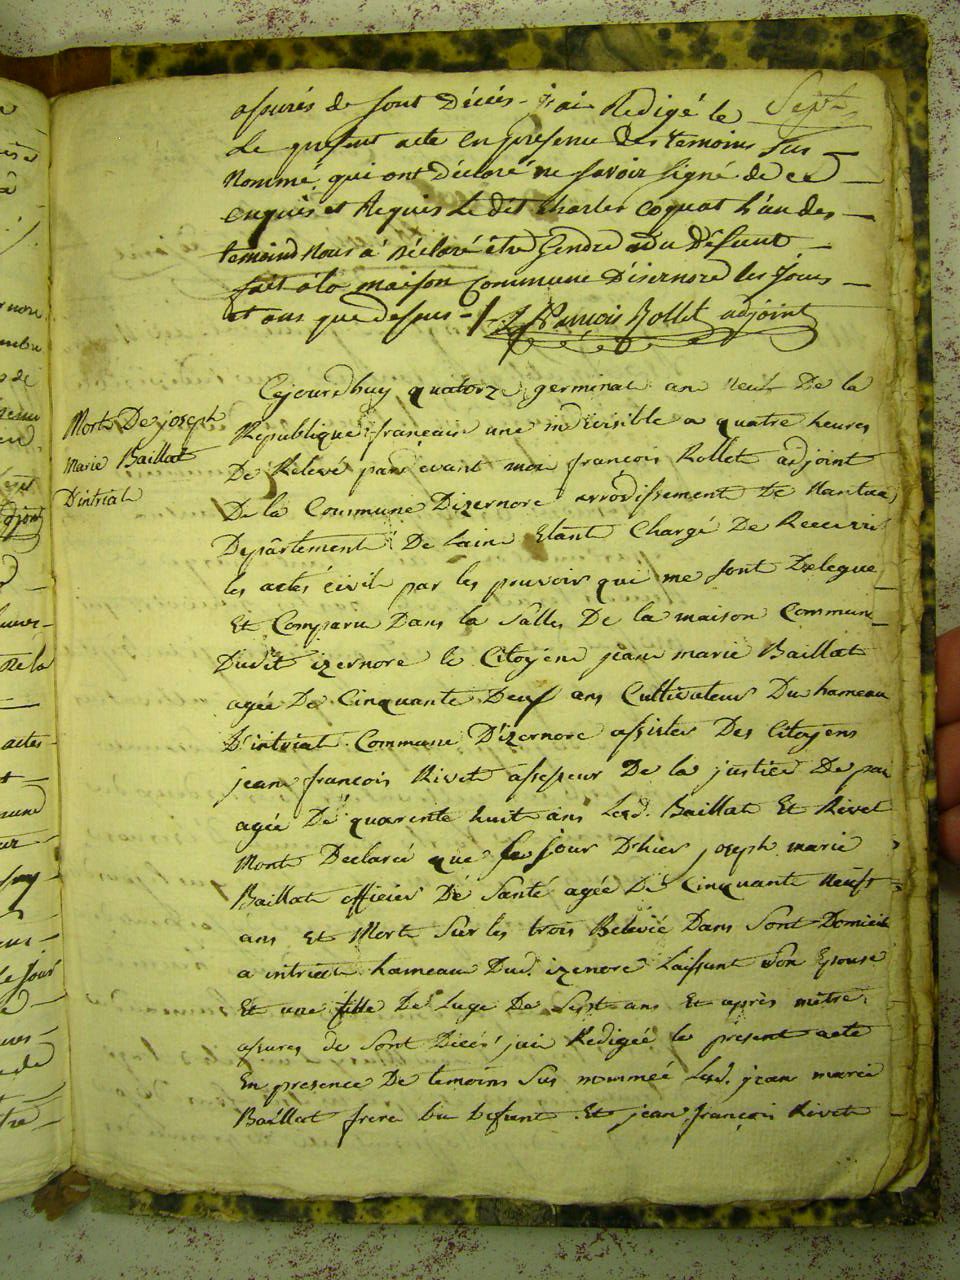 Sept
assurés de sont Décès j'ai Redigé le
Le present acte en presence des temoins sus
Nommé, qui ont Déclaré ne savoir signé de ce
enquis et Requis Le dit Charles Coquat l'un des
temoins Nous a déclaré être Gendre du Défunt
fait à la maison Commune D'isernore les Jours
et ans que dessus
François Rollet adjoint
Morts De joseph
Marie Baillat
D'intriat
Cejourdhuy quatorze germinal an neuf De la
Republique françaisse une indivisible a quatre heures
De Relevé par devant moi françois Rollet adjoint
De la Commune Dizernore arrodissement De Nantua
Departement De Lain Etant Chargé De Recevoir
les actes civil par les pouvoir qui me sont Delegue
Et Comparu Dans la Salles De la maison Commun
Dudit izernore le Citoyen jean marie Baillat
agée De Cinquante Deuf ans Cultivateur Du hameau
D'intriat Commune D'izernore assistes Des Citoyens
jean françois Rivet assesseur De la justice De paix
agée De quarente huit ans Lesd. Baillat Et Rivet
Mont Declaré que le jour D'hier joseph marie
Baillat officier De Santé agée De Cinquante Neuf
ans Et Mort Sur les trois Relevée Dans Sont Domicile
a intriat hameau Dud. izenore Laissant Son Epouse
Et une fille De Lage De Sept ans Et après mêtre
assures de Sont Décès jai Redigée le present acte
En presence De temoins Sus nommée Lesd. jean marie
Baillat frere du Defunt Et jean françois Rivet